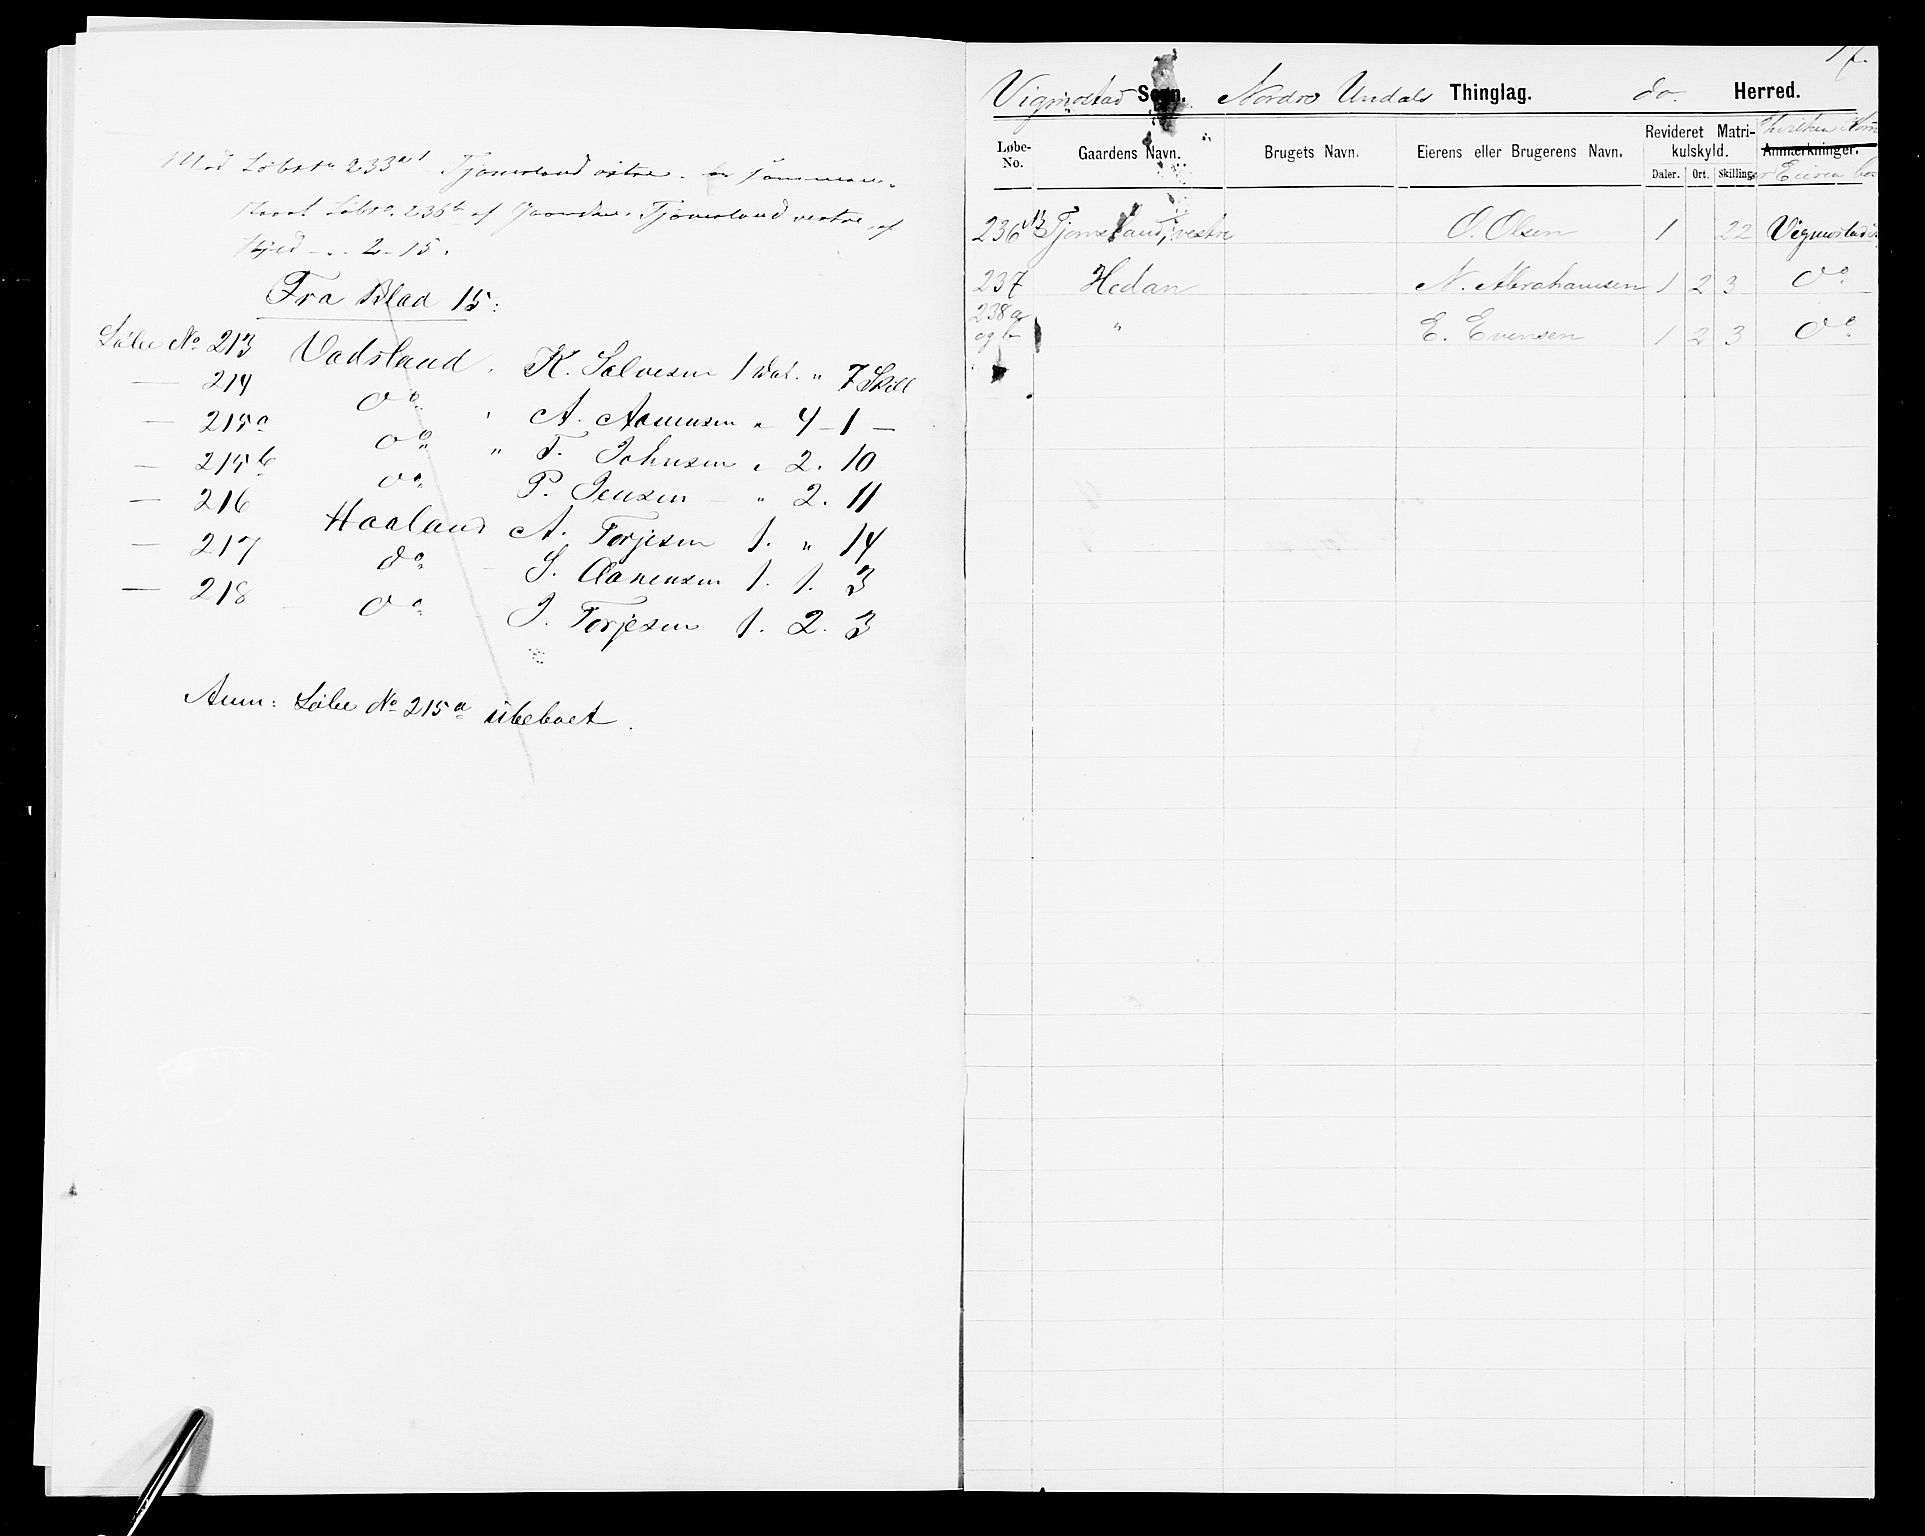 Med Löbe No 233 a1 Tjomsland östre er sammen-
Löbe No. 236 b af Tjomsland vestre, af
Skyld - .. 2 - 15.
Fra Blad 15:
Løbe No 213 Vadsland, K. Salvesen 1 Dal. " 7 Skill
— 214 Do " A. Aanensen " 4 - 1 —
— 215a Do " T. Johnsen " 2. 10
— 215b Do P. Jensen — " 2. 11
— 216 Haaland A. Torjesen 1. " 14
— 217 do S. Aanensen 1. 1. 3
— 218 Do J. Torjesen 1. 2. 3
Anm: Løbe No 215a ubeboet.
17.
Vigmostad Sogn. Nordre Undals Thinglag. do. Herred.
Løbe-No. Gaardens Navn. Brugets Navn. Eierens eller Brugerens Navn. Revideret Matrikulskyld. Daler. Ort. Skilling. Anmærkninger. Hvilken Kom
Eieren bor
236 Tjomsland, vestre O. Olsen 1 22 Vigmostad
237 Hedan N. Abrahamsen 1 2 3 Do
238a og b " E. Evensen 1 2 3 Do